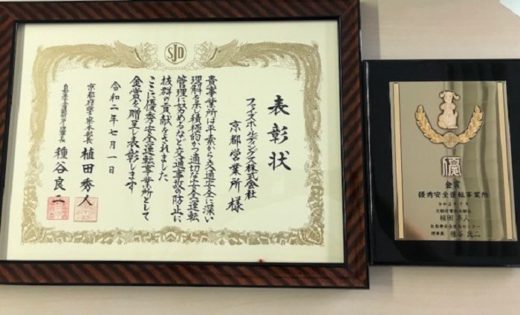 SJD
表彰状
ファイズホールディングス株式会社
京都営業所 様
貴事業所は平素から交通安全に深い
理解を示し積極的かつ適切な安全運転
管理に努めるなど交通事故の防止に
抜群の貢献をされました
ここに優秀安全運転事業所として
金賞を贈呈し表彰します
令和二年七月一日
京都府警察本部長 植田秀人
自動車安全運転センター理事長 種谷良二
優
金賞
優秀安全運転事業所
植田秀人
理事長 種谷良二